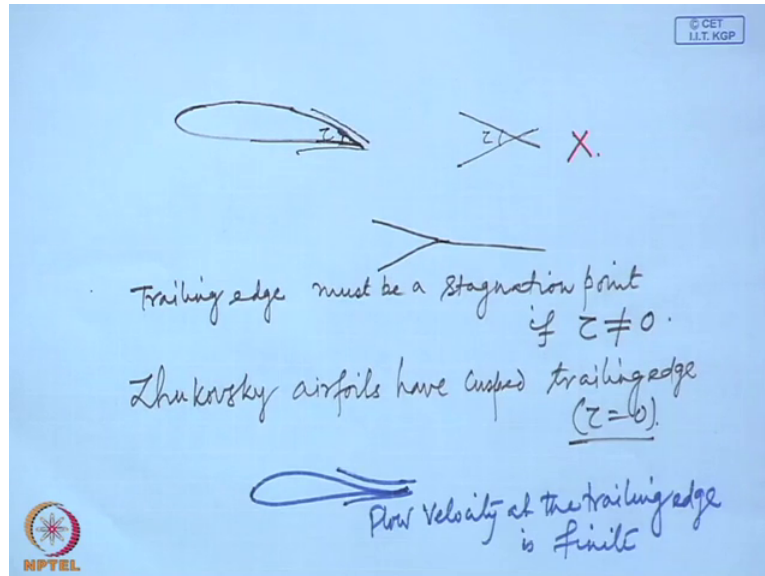 © CET
I.I.T. KGP
τ
τ
X.
Trailing edge must be a stagnation point
if τ ≠ 0.
Zhukovsky airfoils have cusped trailing edge
(τ=0).
Flow velocity at the trailing edge
is finite
NPTEL